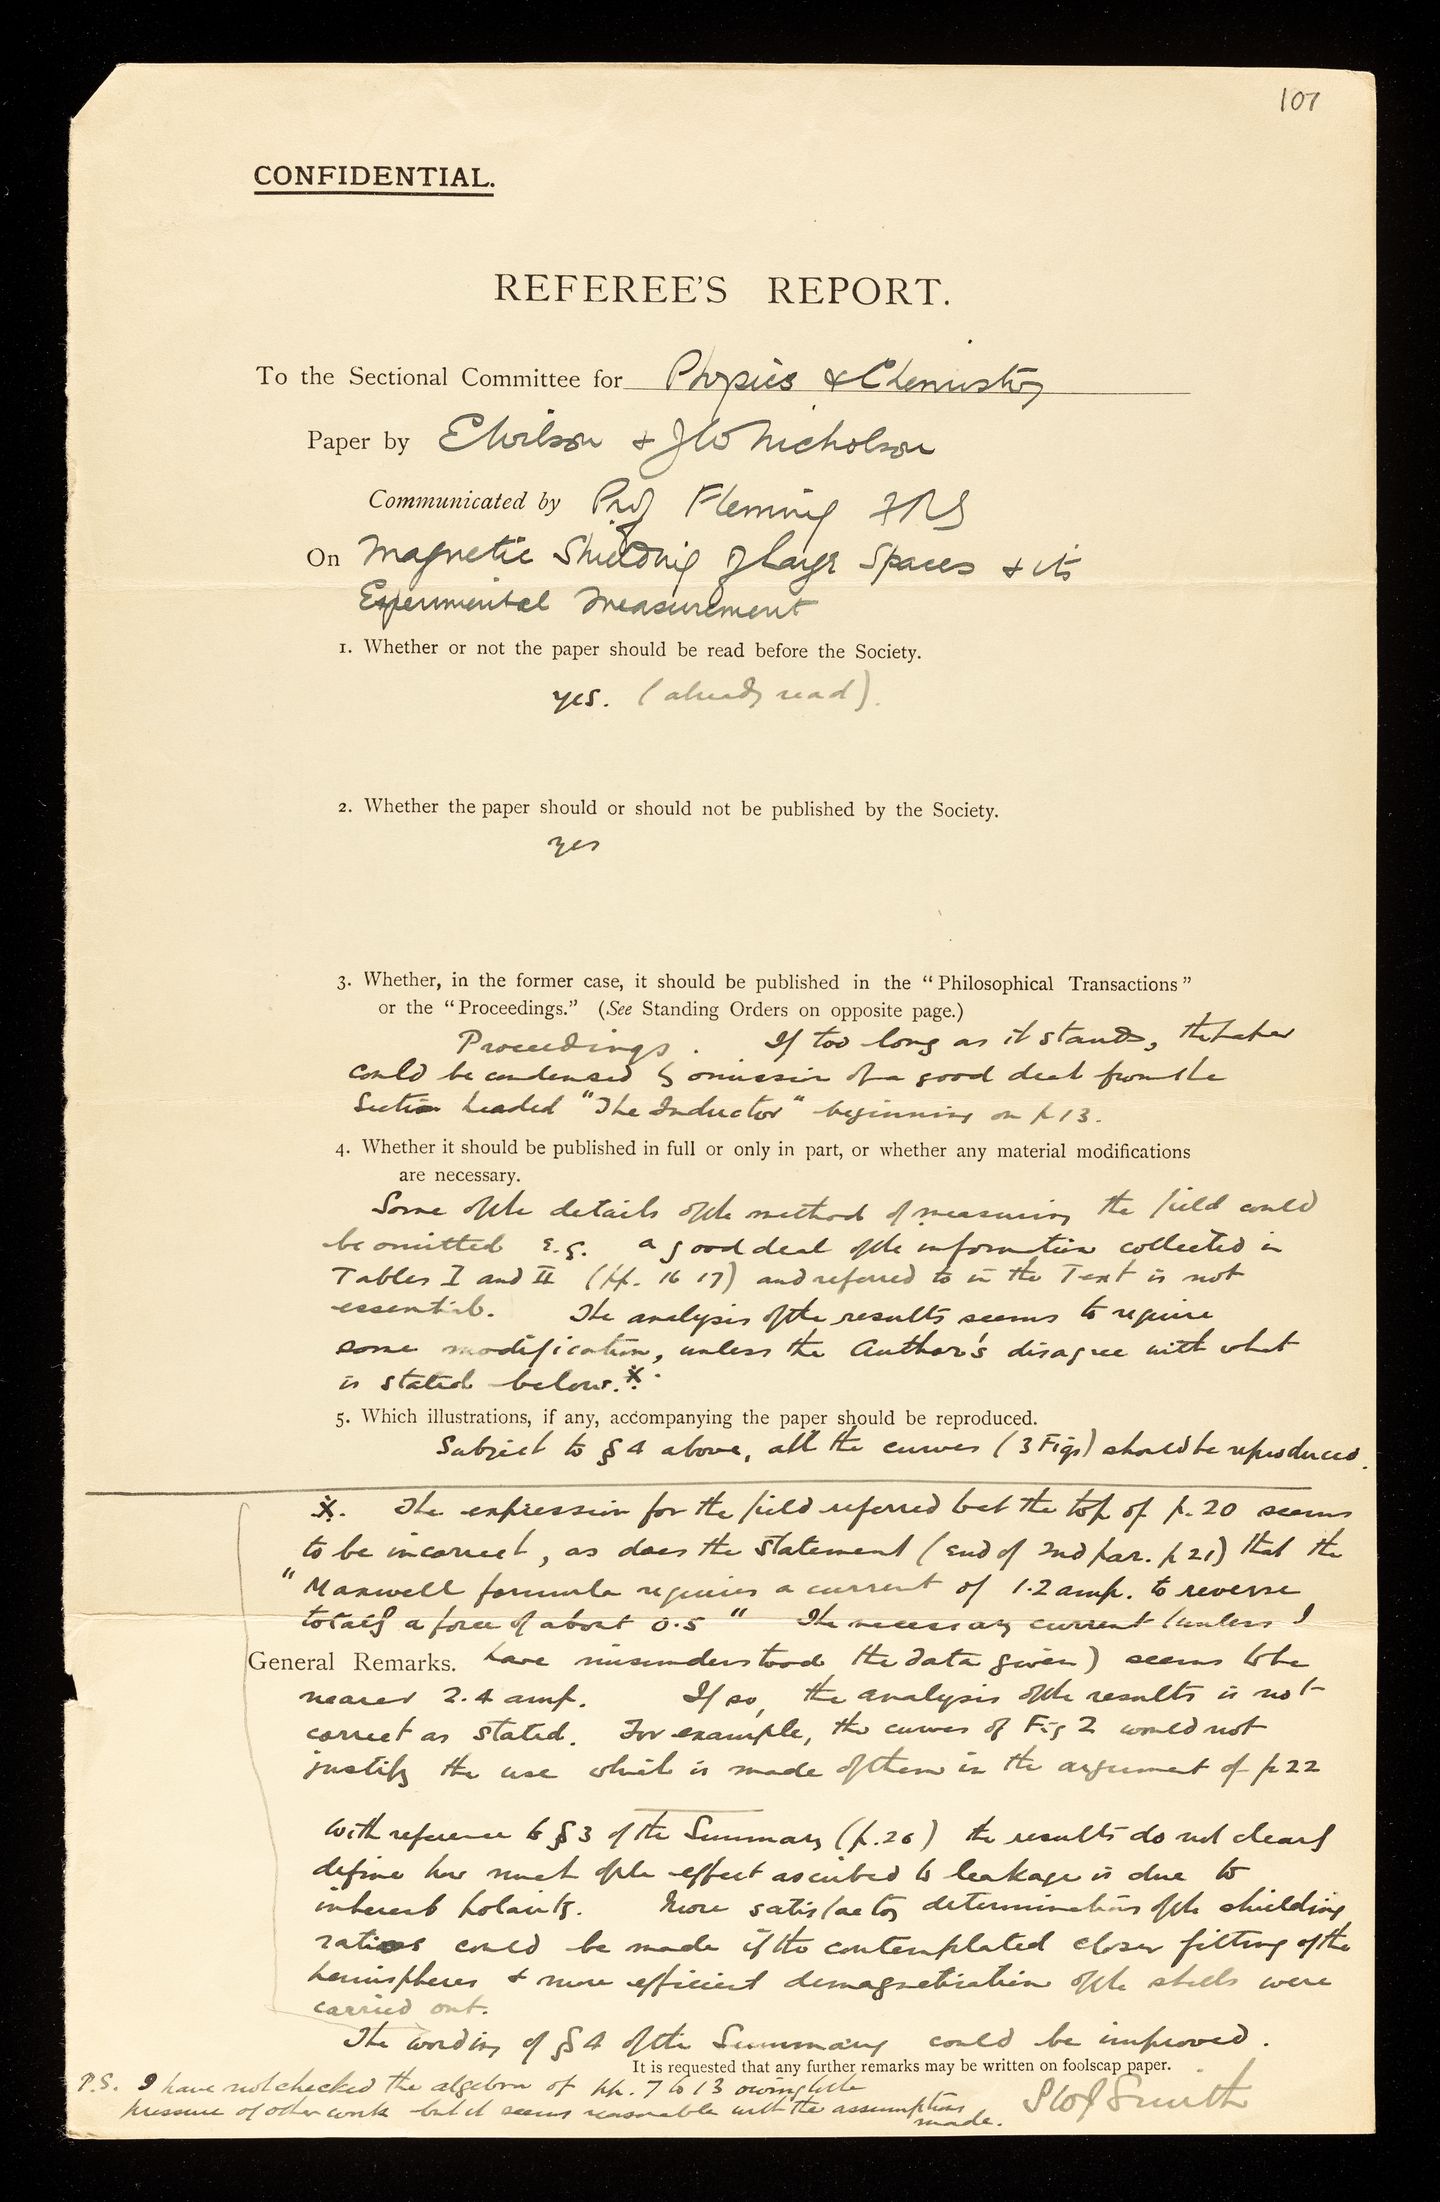 107
CONFIDENTIAL.
REFEREE'S REPORT.
To the Sectional Committee for Physics & Chemistry
Paper by E Wilson & J W Nicholson
Communicated by Prof Fleming FRS
On Magnetic Shielding of Large Spaces & its
Experimental Measurement
1. Whether or not the paper should be read before the Society.
yes. (already read).
2. Whether the paper should or should not be published by the Society.
yes
3. Whether, in the former case, it should be published in the "Philosophical Transactions"
or the "Proceedings." (See Standing Orders on opposite page.)
Proceedings. If too long as it stands, the paper
could be condensed by omission of a good deal from the
Section headed "The Inductor" beginning on p 13.
4. Whether it should be published in full or only in part, or whether any material modifications
are necessary.
Some of the details of the method of measuring the field could
be omitted e.g. a good deal of the information collected in
Tables I and II (pp. 16 17) and referred to in the Text is not
essential. The analysis of the results seems to require
some modification, unless the Author's disagree with what
is stated below. X.
5. Which illustrations, if any, accompanying the paper should be reproduced.
Subject to § 4 above, all the curves (3 Figs) should be reproduced.
X. The expression for the field referred to at the top of p. 20 seems
to be incorrect, as does the statement (end of 2nd par. p 21) that the
"Maxwell formula requires a current of 1.2 amp. to reverse
totally a force of about 0.5" The necessary current (unless I
General Remarks. have misunderstood the data given) seems to be
nearer 2.4 amp. If so, the analysis of the results is not
correct as stated. For example, the curves of Fig 2 would not
justify the use which is made of them in the argument of p 22
With reference to § 3 of the Summary (p. 26) the results do not clearly
define how much of the effect ascribed to leakage is due to
inherent polarity. More satisfactory determinations of the shielding
ratios could be made if the contemplated closer fitting of the
hemispheres & more efficient demagnetisation of the shells were
carried out.
The wording of § 4 of the Summary could be improved.
It is requested that any further remarks may be written on foolscap paper.
P.S. I have not checked the algebra of pp. 7 to 13 owing to the
pressure of other work but it seems reasonable with the assumptions
made.
S W J Smith